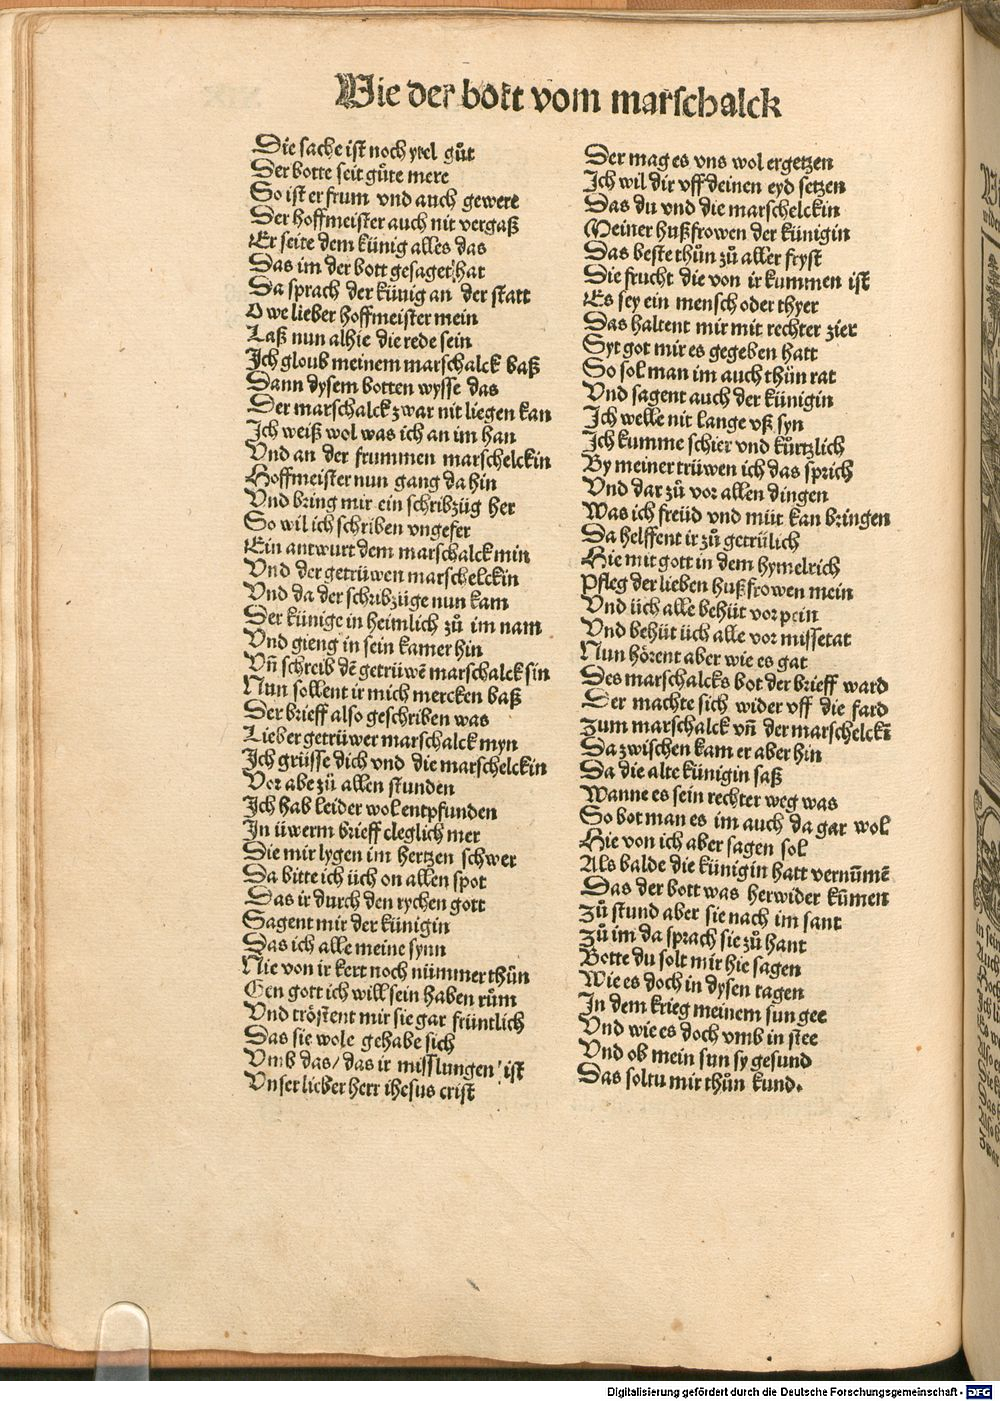 Wie der bott vom marschalck
Die sache ist noch ytel gůt
Der botte seit gůte mere
So ist er frum vnd auch gewere
Der hoffmeister auch nit vergaß
Er seite dem künig alles das
Das im der bott gesaget hat
Da sprach der künig an der statt
O we lieber hoffmeister mein
Laß nun alhie die rede sein
Ich gloub meinem marschalck baß
Dann dysem botten wysse das
Der marschalck zwar nit liegen kan
Ich weiß wol was ich an im han
Vnd an der frummen marschelckin
Hoffmeister nun gang da hin
Vnd bring mir ein schribzüg her
So wil ich schriben vngefer
Ein antwurt dem marschalck min
Vnd der getrüwen marschelckin
Vnd da der schribzüge nun kam
Der künige in heimlich zů im nam
Vnd gieng in sein kamer hin
Vñ schreib dē getrüwē marschalck sin
Nun sollent ir mich mercken baß
Der brieff also geschriben was
Lieber getrüwer marschalck myn
Ich grüsse dich vnd die marschelckin
Vor abe zů allen stunden
Ich hab leider wol entpfunden
In üwerm brieff cleglich mer
Die mir lygen im hertzen schwer
Da bitte ich üch on allen spot
Das ir durch den rychen gott
Sagent mir der künigin
Das ich alle meine synn
Nie von ir kert noch nümmer thůn
Gen gott ich will sein haben rům
Vnd tröstent mir sie gar früntlich
Das sie wole gehabe sich
Vmb das / das ir misslungen ist
Vnser lieber herr ihesus crist
Der mag es vns wol ergetzen
Ich wil dir vff deinen eyd setzen
Das du vnd die marschelckin
Meiner hußfrowen der künigin
Das beste thůn zů aller fryst
Die frucht die von ir kummen ist
Es sey ein mensch oder thyer
Das haltent mir mit rechter zier
Syt got mir es gegeben hatt
So sol man im auch thůn rat
Vnd sagent auch der künigin
Ich welle nit lange vß syn
Ich kumme schier vnd kůrtzlich
By meiner trüwen ich das sprich
Vnd dar zů vor allen dingen
Was ich freüd vnd müt kan bringen
Da helffent ir zů getrülich
Hie mit gott in dem hymelrich
Pfleg der lieben hußfrowen mein
Vnd üch alle behüt vor pein
Vnd behüt üch alle vor missetat
Nun hörent aber wie es gat
Des marschalcks bot der brieff ward
Der machte sich wider vff die fard
Zum marschalck vñ der marschelckī
Da zwischen kam er aber hin
Da die alte künigin saß
Wanne es sein rechter weg was
So bot man es im auch da gar wol
Hie von ich aber sagen sol
Als balde die künigin hatt vernūmē
Das der bott was herwider kūmen
Zů stund aber sie nach im sant
Zů im da sprach sie zů hant
Botte du solt mir hie sagen
Wie es doch in dysen tagen
In dem krieg meinem sun gee
Vnd wie es doch vmb in stee
Vnd ob mein sun sy gesund
Das soltu mir thůn kund.
Digitalisierung gefördert durch die Deutsche Forschungsgemeinschaft - DFG